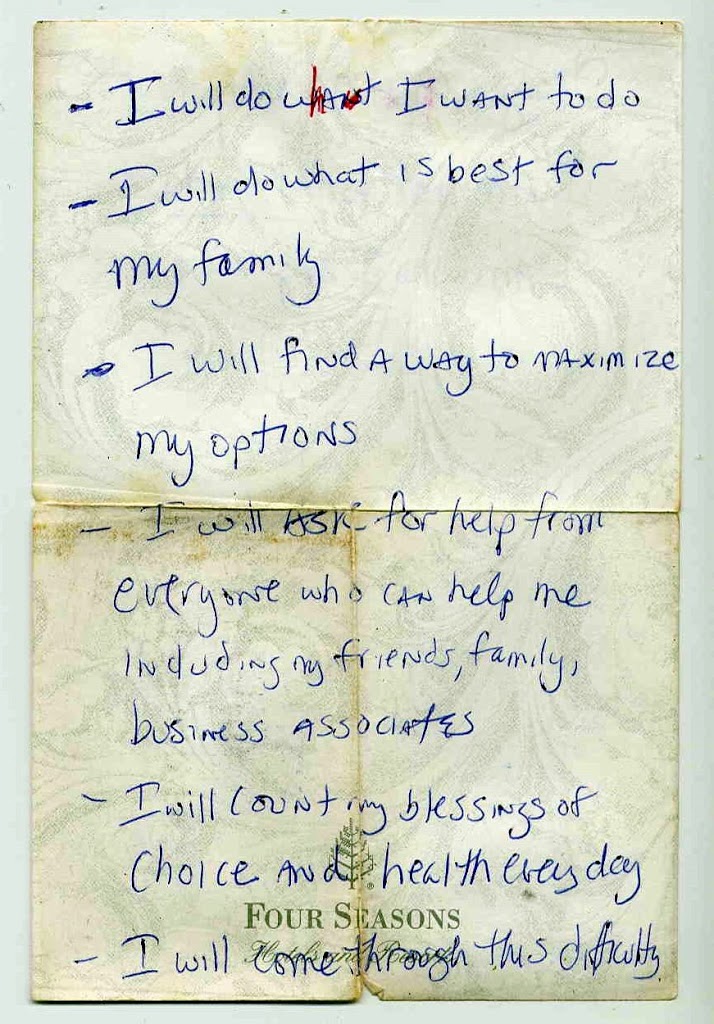 - I will do what I WANT to do
- I will do what is best for
my family
- I will find A WAY to MAXIMIZE
my options
- I will ASK for help from
everyone who CAN help me
including my friends, family,
business ASSOCIATES
- I will count my blessings of
Choice AND health every day
FOUR SEASONS
Hotels and Resorts
- I will come through this difficulty